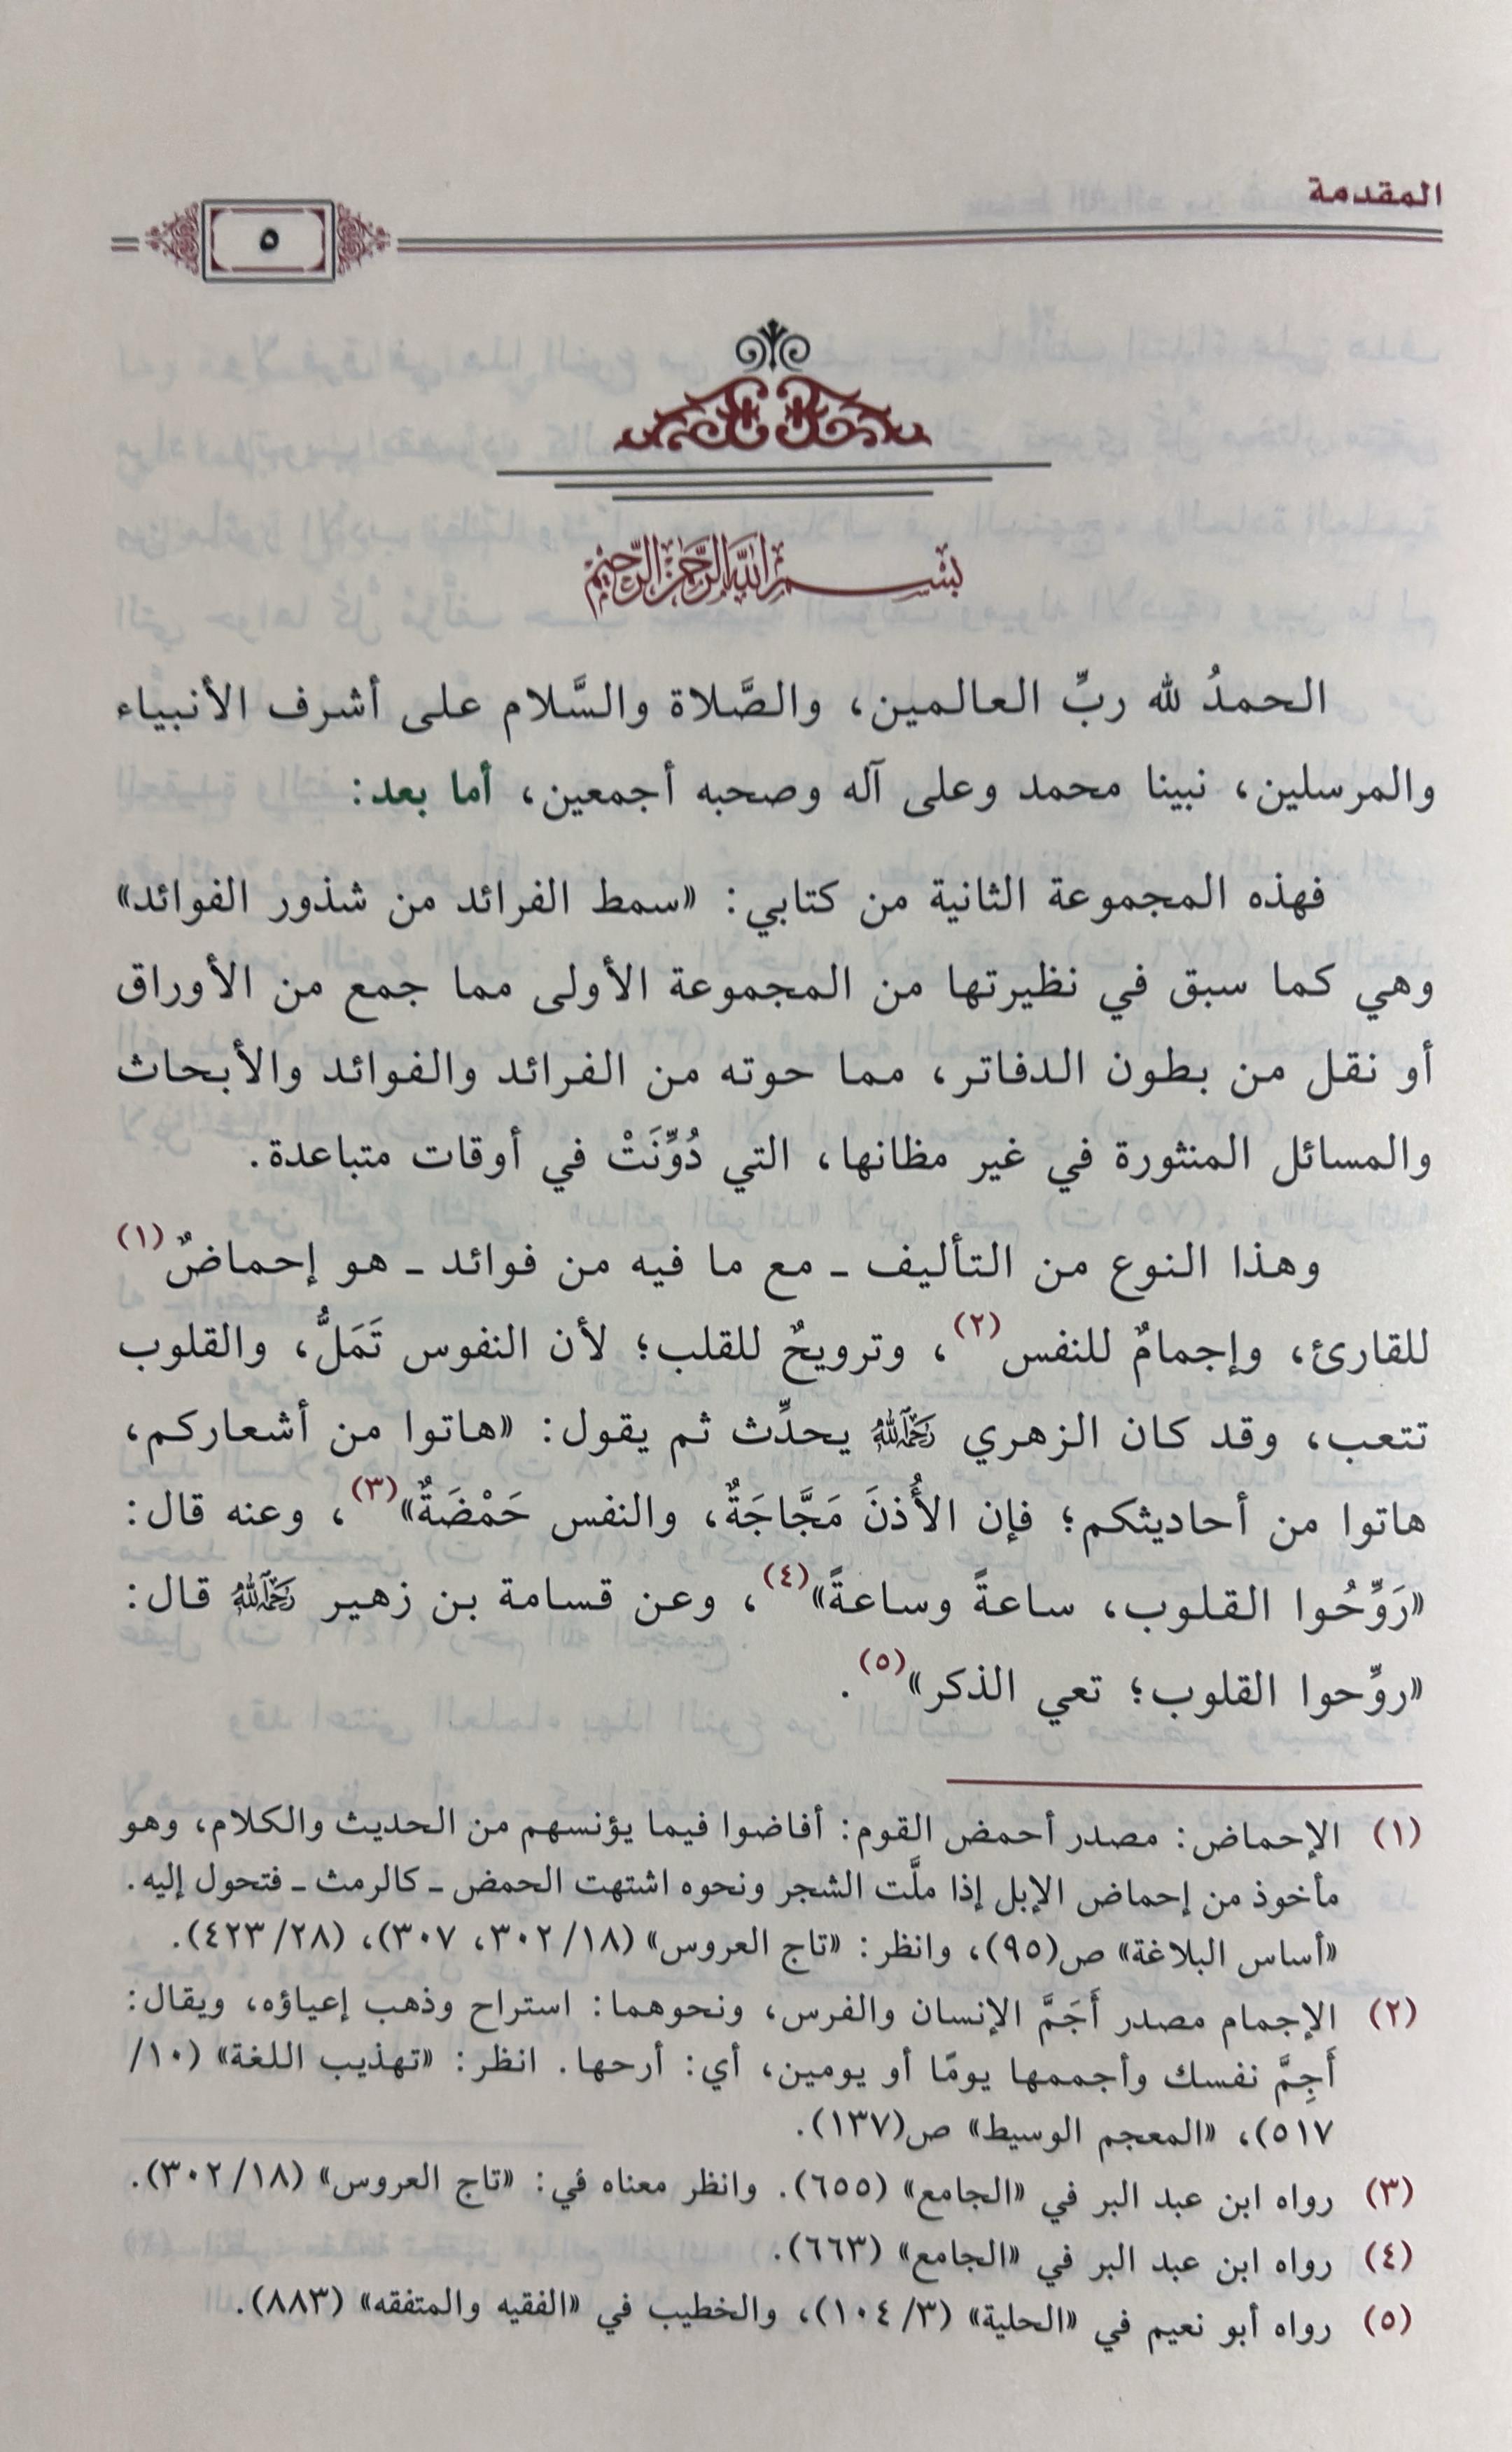 المقدمة
٥
بسم الله الرحمن الرحيم
الحمدُ لله ربِّ العالمين، والصَّلاة والسَّلام على أشرف الأنبياء
والمرسلين، نبينا محمد وعلى آله وصحبه أجمعين، أما بعد:
فهذه المجموعة الثانية من كتابي: «سمط الفرائد من شذور الفوائد»
وهي كما سبق في نظيرتها من المجموعة الأولى مما جمع من الأوراق
أو نقل من بطون الدفاتر، مما حوته من الفرائد والفوائد والأبحاث
والمسائل المنثورة في غير مظانها، التي دُوِّنَتْ في أوقات متباعدة.
وهذا النوع من التأليف ـ مع ما فيه من فوائد ـ هو إحماضٌ(١)
للقارئ، وإجمامٌ للنفس(٢)، وترويحٌ للقلب؛ لأن النفوس تَمَلُّ، والقلوب
تتعب، وقد كان الزهري رحمه الله يحدِّث ثم يقول: «هاتوا من أشعاركم،
هاتوا من أحاديثكم؛ فإن الأُذنَ مَجَّاجَةٌ، والنفس حَمْضَةٌ»(٣)، وعنه قال:
«رَوِّحُوا القلوب، ساعةً وساعةً»(٤)، وعن قسامة بن زهير رحمه الله قال:
«روِّحوا القلوب؛ تعي الذكر»(٥).
(١) الإحماض: مصدر أحمض القوم: أفاضوا فيما يؤنسهم من الحديث والكلام، وهو
مأخوذ من إحماض الإبل إذا ملَّت الشجر ونحوه اشتهت الحمض ـ كالرمث ـ فتحول إليه.
«أساس البلاغة» ص(٩٥)، وانظر: «تاج العروس» (٣٠٢/١٨، ٣٠٧)، (٤٢٣/٢٨).
(٢) الإجمام مصدر أَجَمَّ الإنسان والفرس، ونحوهما: استراح وذهب إعياؤه، ويقال:
أَجِمَّ نفسك وأجممها يومًا أو يومين، أي: أرحها. انظر: «تهذيب اللغة» (١٠/
٥١٧)، «المعجم الوسيط» ص(١٣٧).
(٣) رواه ابن عبد البر في «الجامع» (٦٥٥). وانظر معناه في: «تاج العروس» (٣٠٢/١٨).
(٤) رواه ابن عبد البر في «الجامع» (٦٦٣).
(٥) رواه أبو نعيم في «الحلية» (١٠٤/٣)، والخطيب في «الفقيه والمتفقه» (٨٨٣).